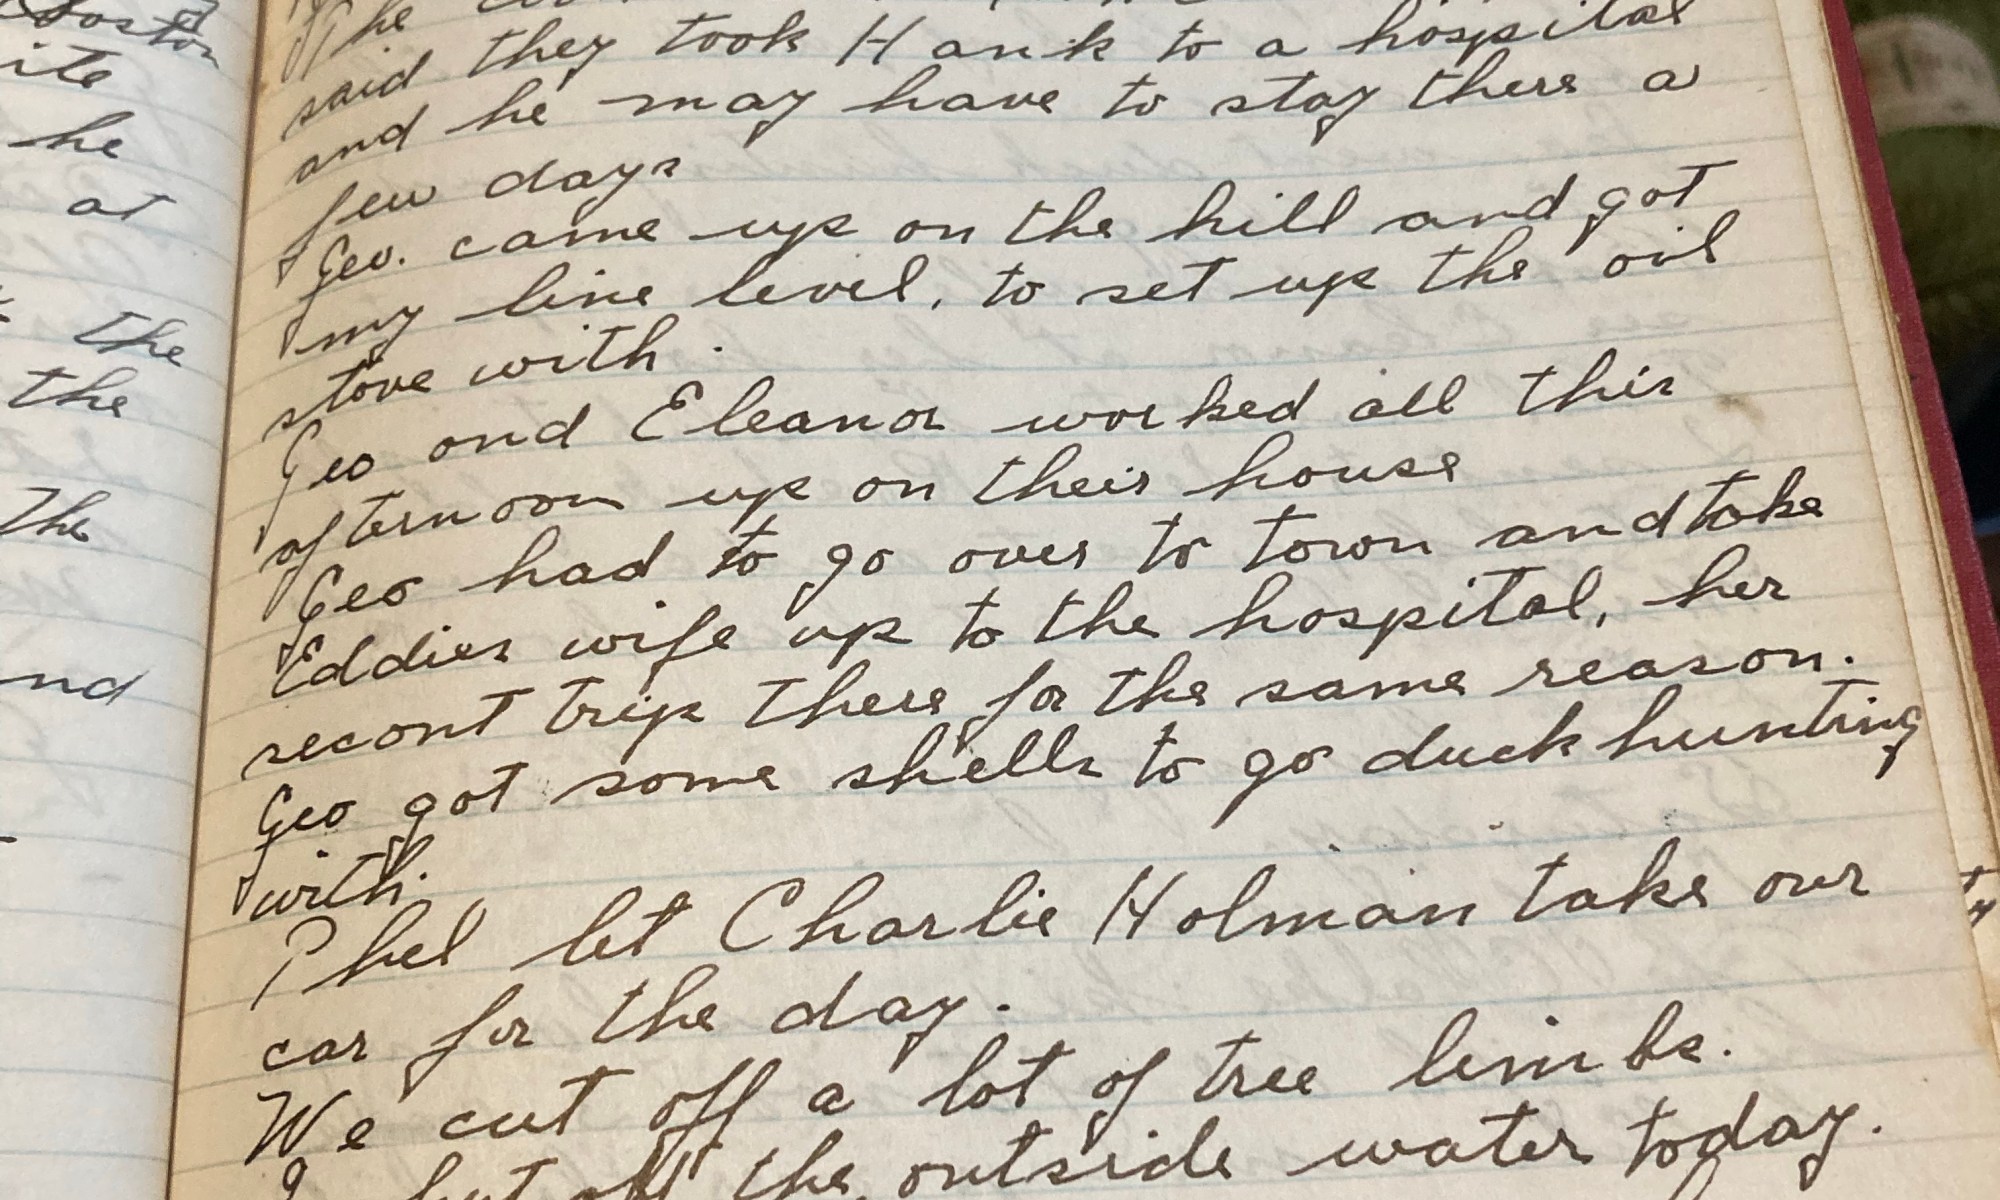 Boston
ite
he
at
the
the
The
nd
The
said they took Hank to a hospital
and he may have to stay there a
few days
Geo. came up on the hill and got
my line level, to set up the oil
stove with.
Geo and Eleanor worked all this
afternoon up on their house
Geo had to go over to town and take
Eddies wife up to the hospital, her
recont trip there for the same reason.
Geo got some shells to go duck hunting
with.
Phel let Charlie Holman take our
car for the day.
We cut off a lot of tree limbs.
I shut off the outside water today.